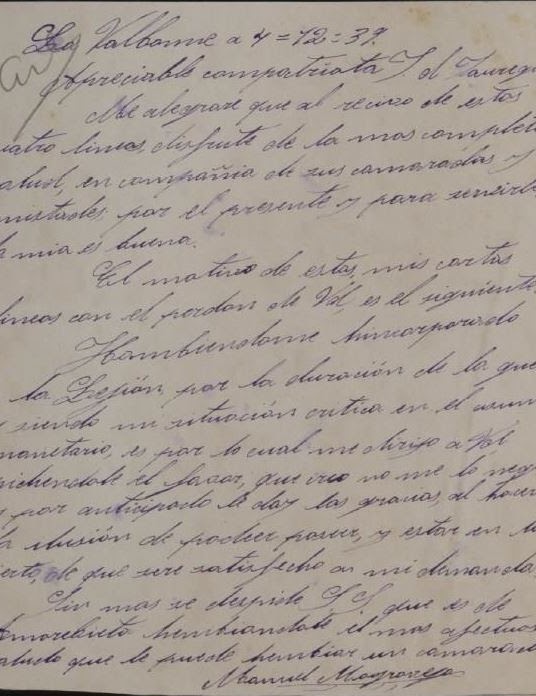 La Valbonne a 4=12=39.
Apreciable compatriota S. de Jauregu
Me alegrare que al recivo de estas
uatro lineas, disfrute de la mas complet
alud, en compañia de sus camaradas y
mistades, por el presente y para servirle
a mia es buena.
El motivo de estas, mis cortas
lineas con el perdon de Vd, es el siguiente
Hambiendome hincorporado
la Lejión, por la duración de la gue
y siendo mi situación critica en el asun
monetario, es por lo cual me dirijo a Vd
pidiendole el favor, que creo no me lo neg
y por anticipado le doy las gracias, al hacer
la ilusión de poder poseer, y estar en lo
ierto, de que sere satisfecho a mi demanda
Sin mas se despide S.S. que es de
Amorebieta hembiandole el mas afectuos
aludo que le puede hembiar un camarad
Manuel